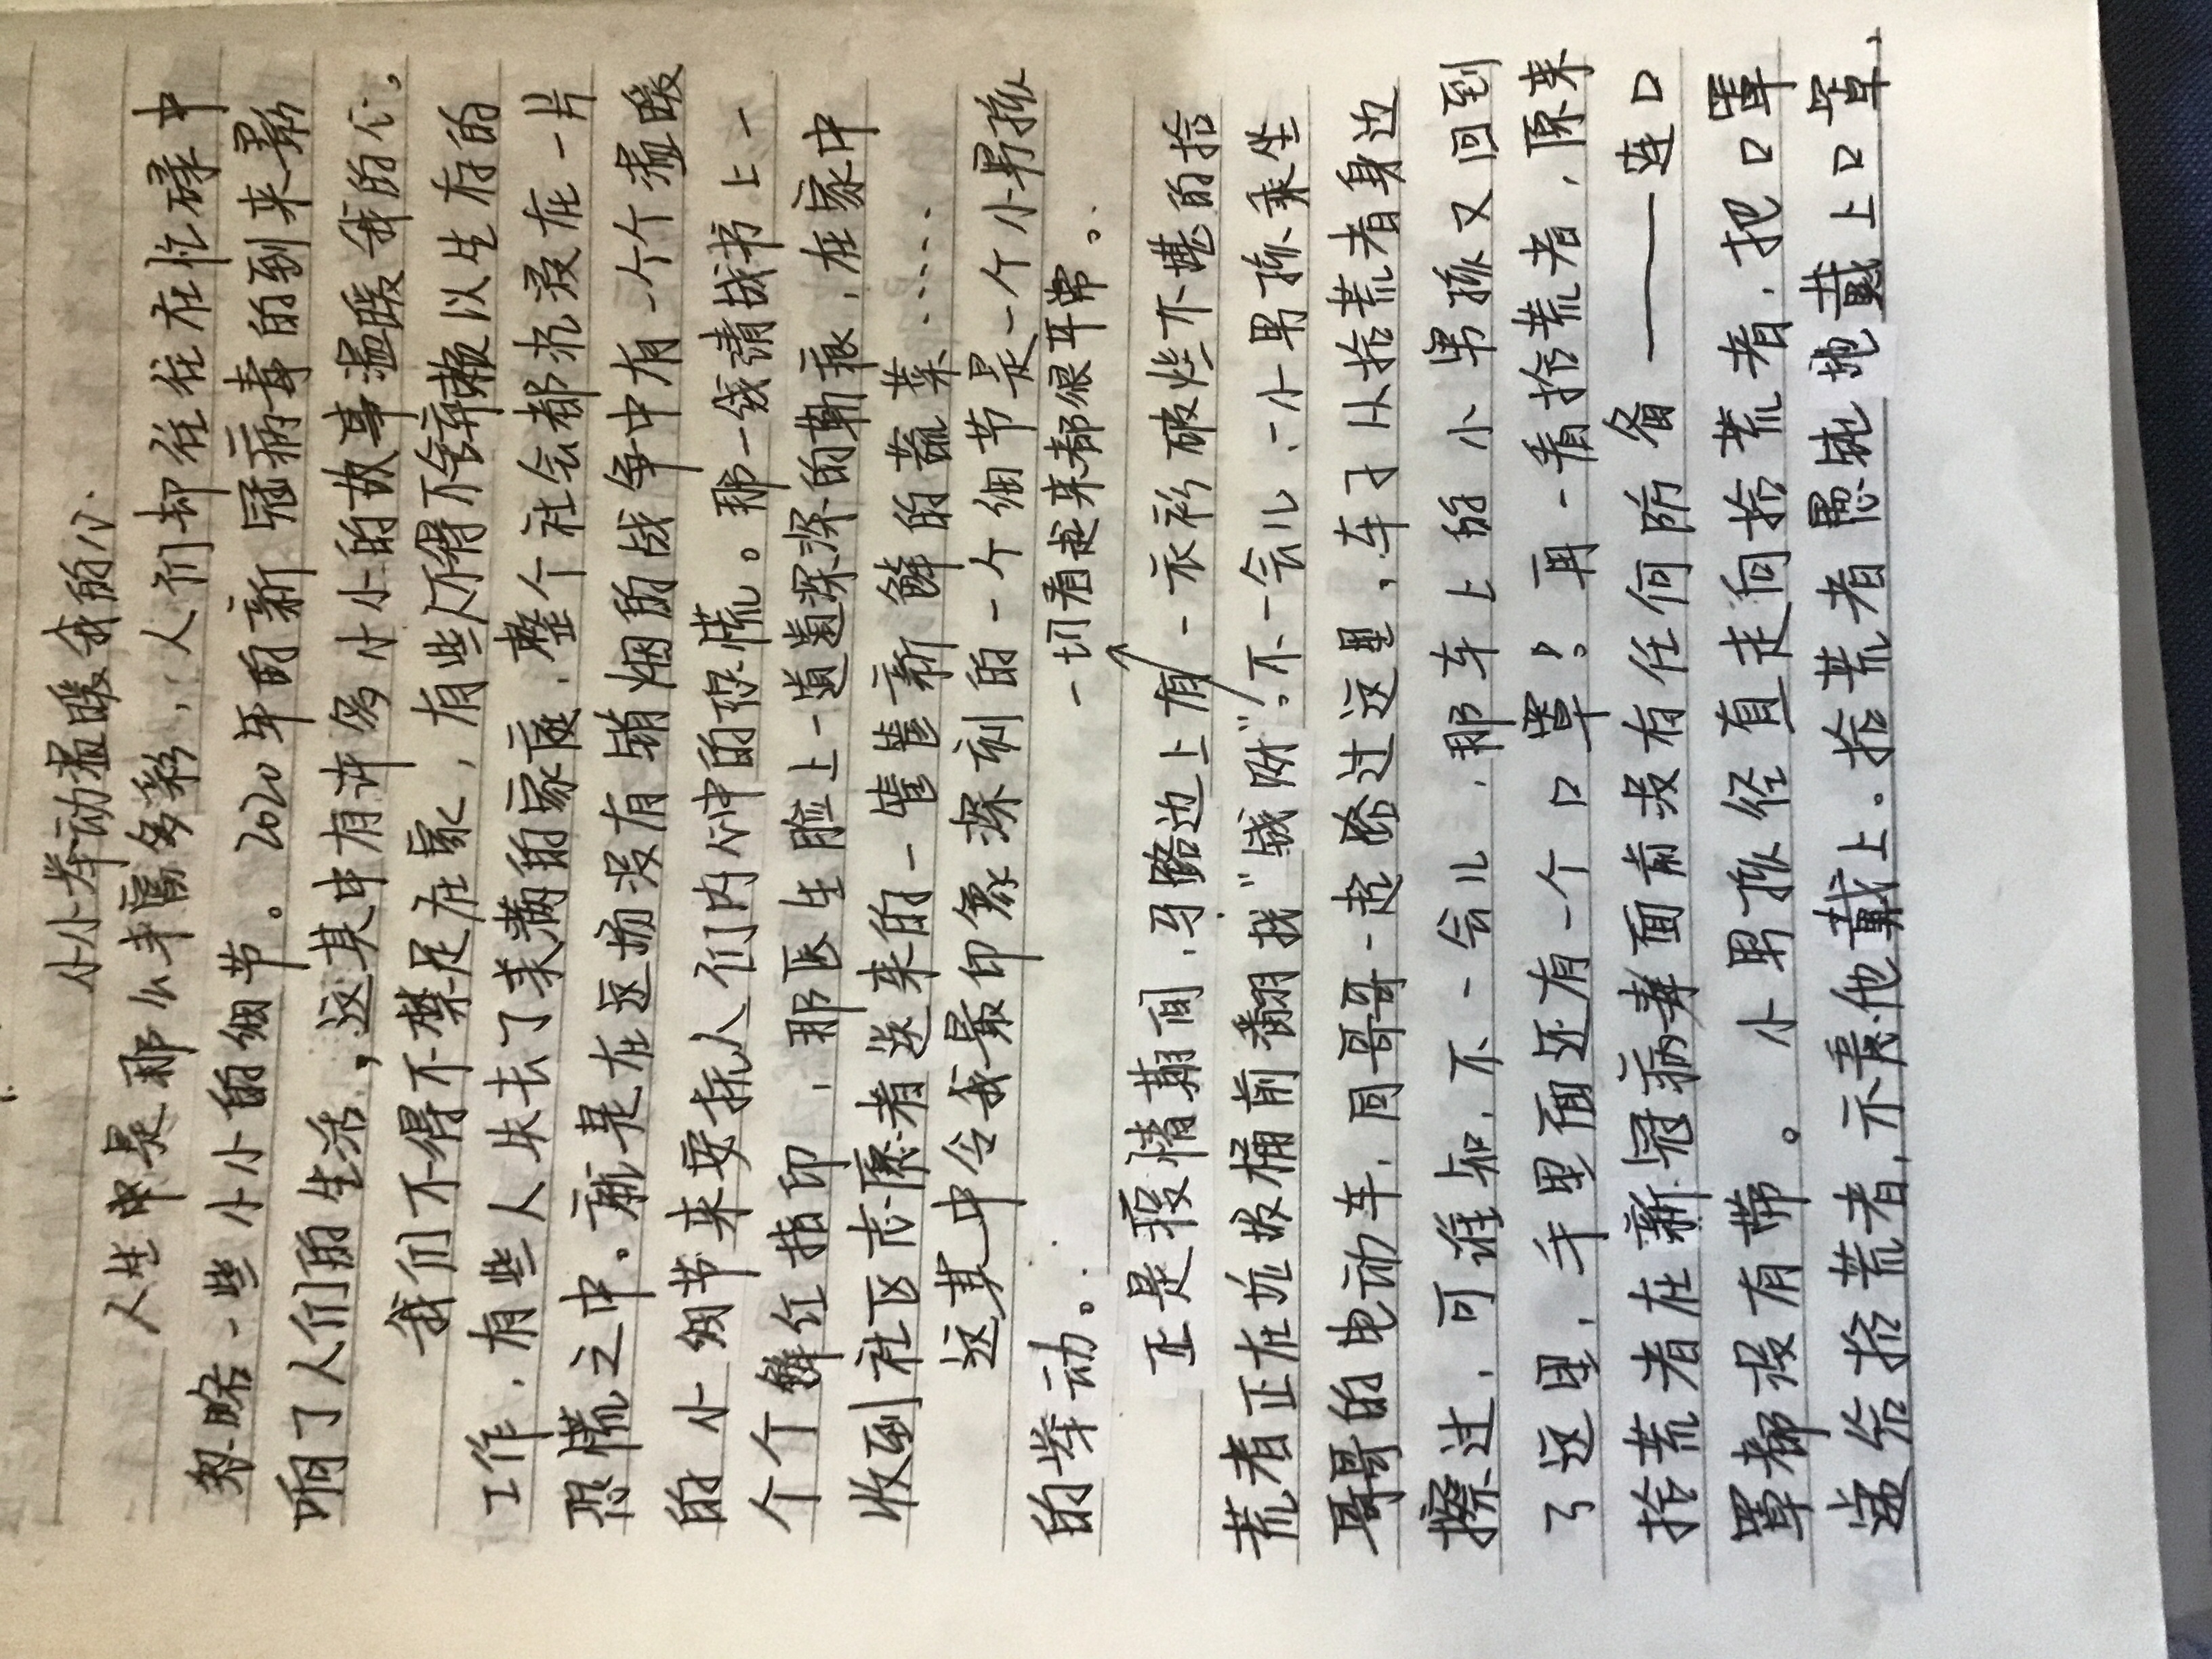 小小举动温暖我的心
人生中是那么丰富多彩，人们却往往在忙碌中
忽略一些小小的细节。2020年的新冠病毒的到来影
响了人们的生活，这其中有许多小小的故事温暖我的心。
我们不得不禁足在家，有些人不得不舍弃赖以生存的
工作，有些人失去了美满的家庭，整个社会都沉浸在一片
恐慌之中。就是在这场没有销烟的战争中有一个个温暖
的小细节来安抚人们内心中的恐慌。那一钱请战书上一
个个鲜红指印，那医生脸上一道道深深的勒痕，在家中
收到社区志愿者送来的一筐筐新鲜的蔬菜……
这其中令我最印象深刻的一个细节是一个小男孩
的举动。
一切看起来都很平常。
正是疫情期间，马路边上有一衣衫破烂不堪的拾
荒者正在垃圾桶前翻找"钱财"。不一会儿：小男孩乘坐
哥哥的电动车，同哥哥一起路过这里，车子从拾荒者身边
擦过，可谁知，不一会儿，那车上的小男孩又回到
了这里，手里面还有一个口罩！再一看拾荒者，原来
拾荒者在新冠病毒面前没有任何防备——连口
罩都没有带。小男孩径直走向拾荒者，把口罩
递给拾荒者，示意他戴上。拾荒者愚钝地戴上口罩，